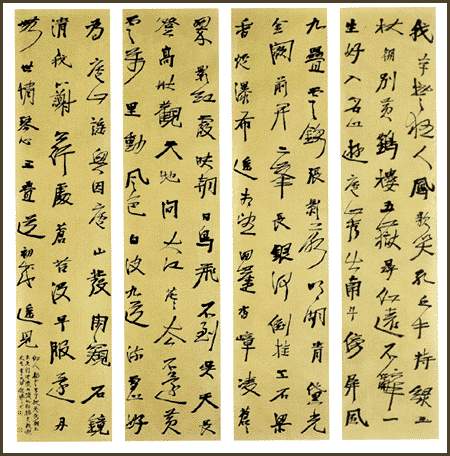 我本楚狂人鳳歌笑孔丘手持綠玉
杖朝別黃鶴樓五嶽尋仙遠不辭一
生好入名山遊廬山秀出南斗傍屏風
九疊雲錦張影落明湖青黛光
金闕前開二峯長銀河倒挂三石梁
香爐瀑布遙相望迴崖沓嶂凌蒼
翠影紅霞映朝日鳥飛不到吳天長
登高壯觀天地間大江茫茫去不還黃
雲萬里動風色白波九道流雪山好
為廬山謠興因廬山發閑窺石鏡
清我心謝公行處蒼苔沒早服還丹
無世情琴心三疊道初成遙見